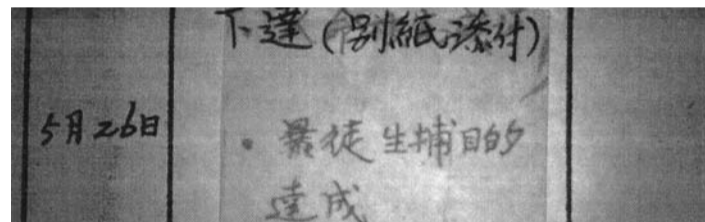 下達(別紙添付)
5月26日
・暴徒生捕目的
達成